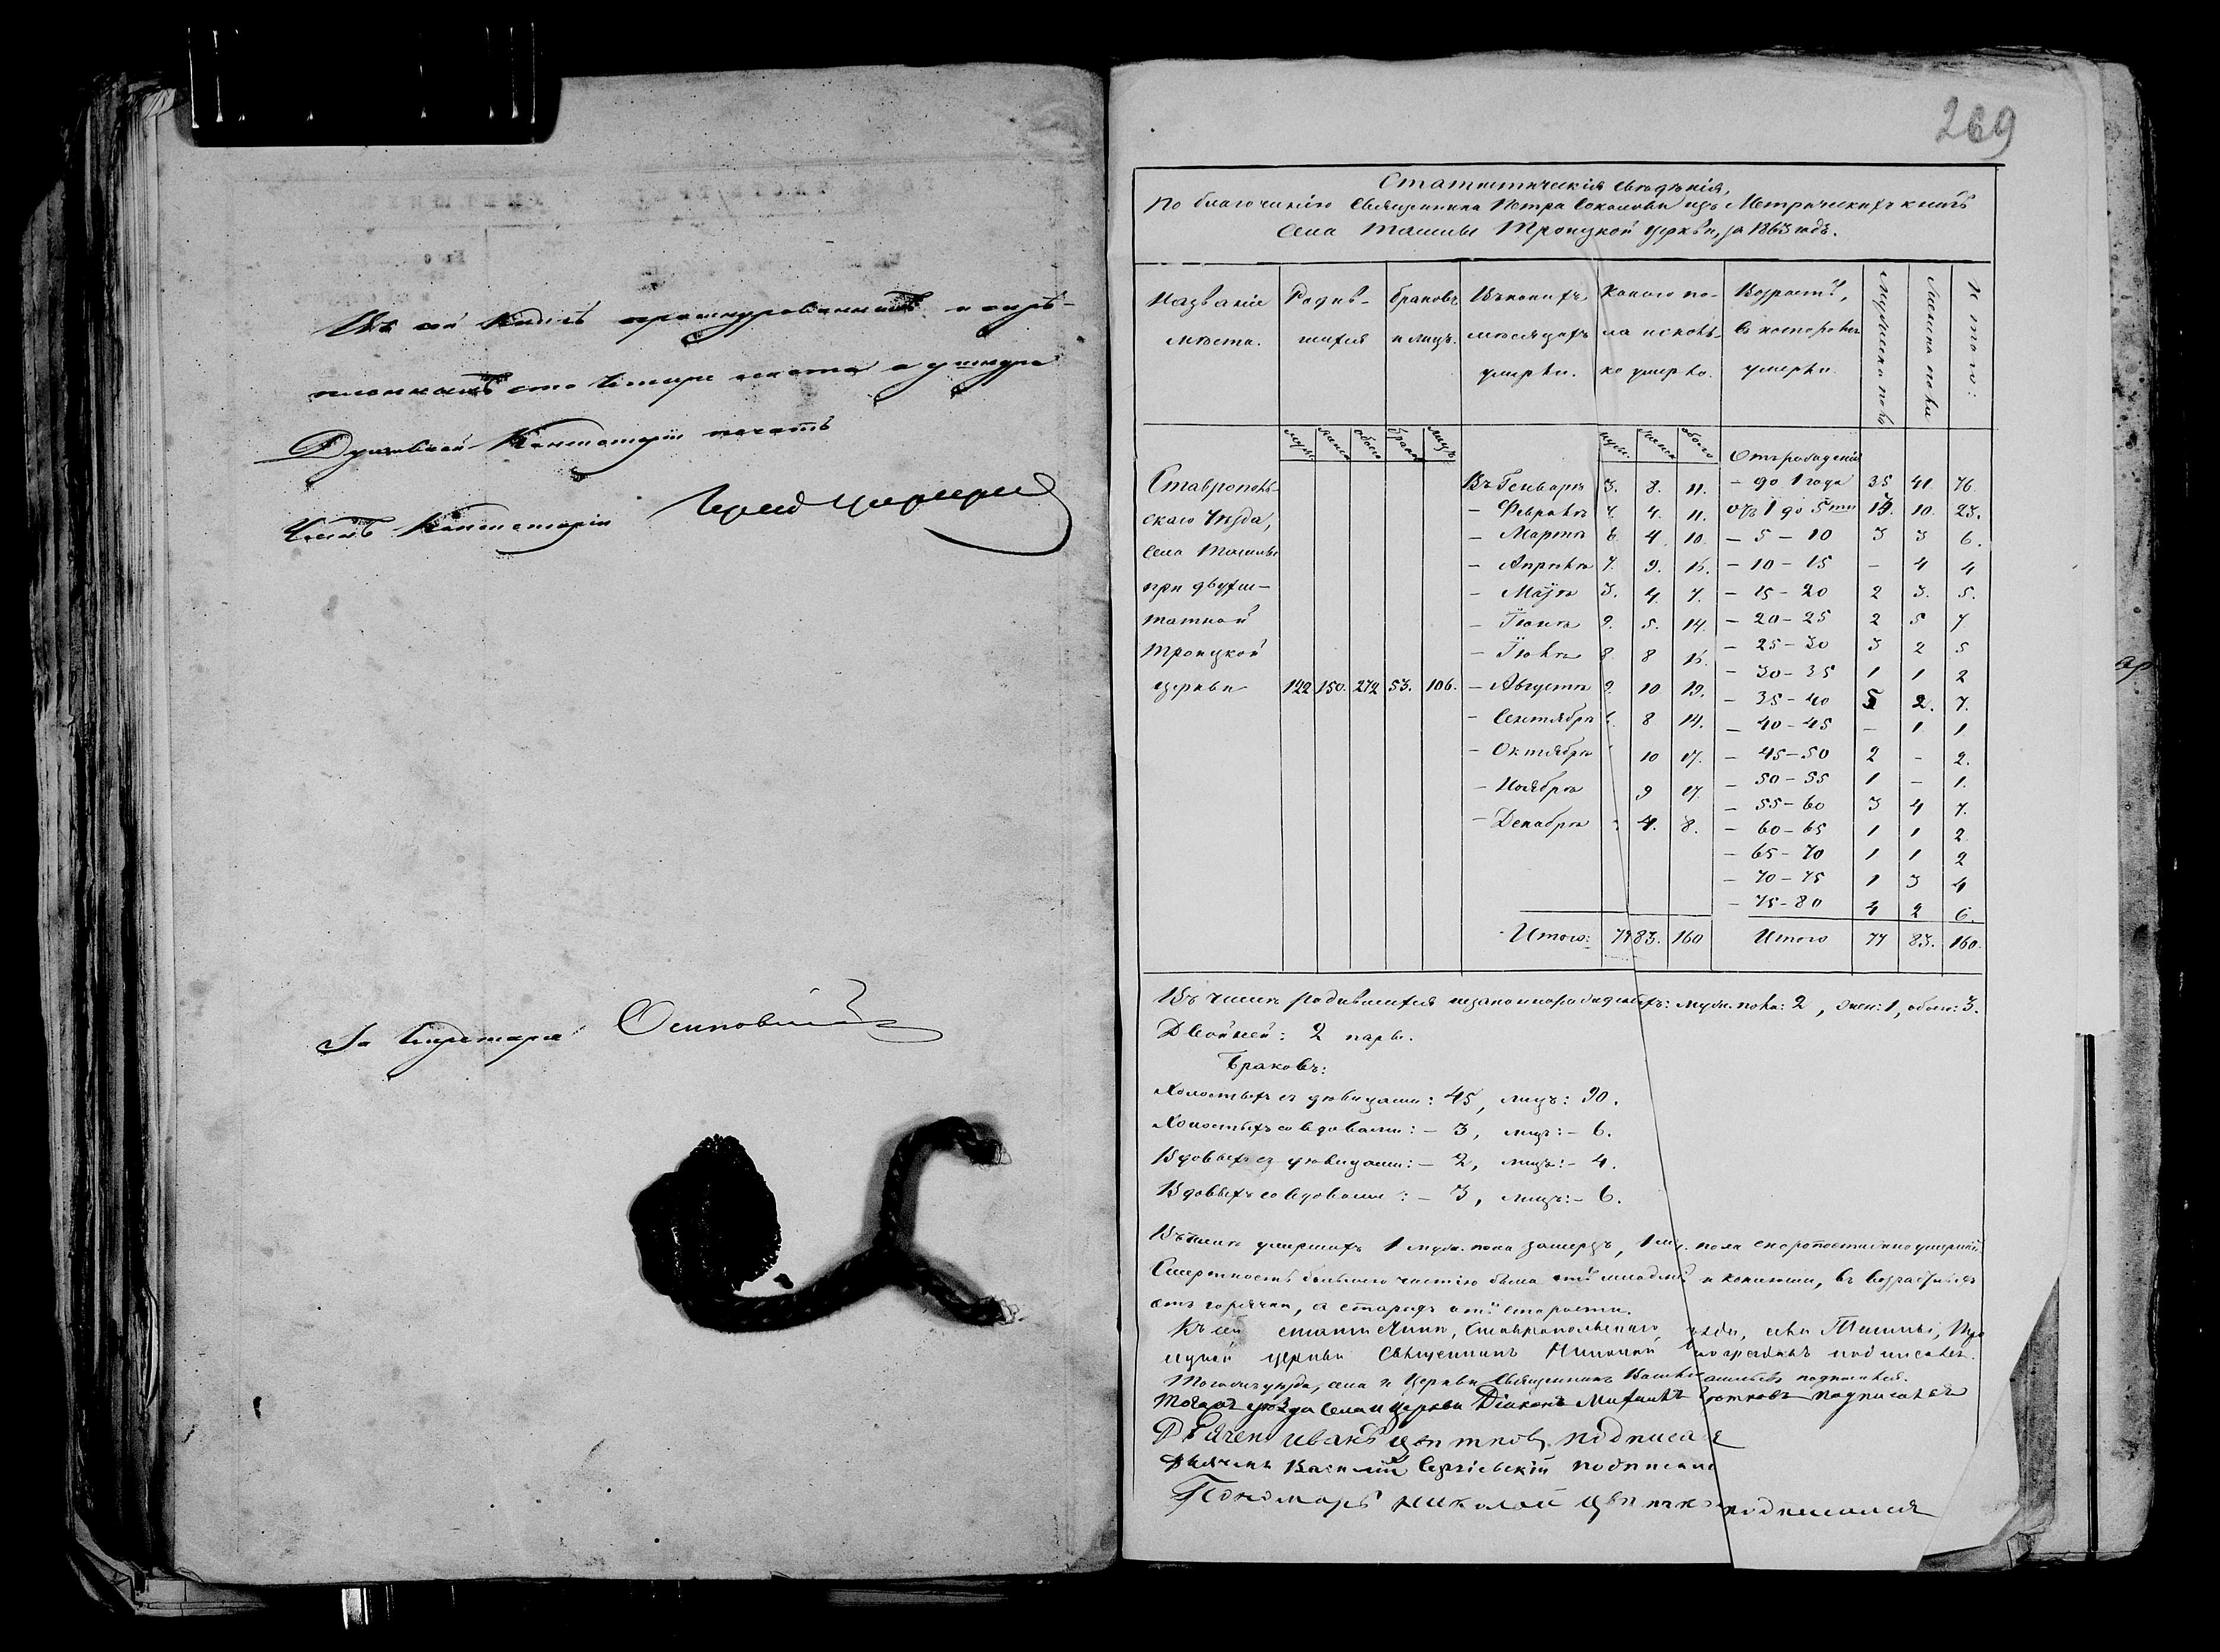 Въ сей книгѣ прошнурованныхъ и скрѣ-
пленныхъ сто четыре листа а у шнура
Духовной Консисторіи печать
Членъ Консисторіи
За Секретаря
269
Статистическія свѣдѣнія,
по благочинію Священника Петра Соколова изъ Метрическихъ книгъ
села Ташлы Троицкой церкви, за 1863 годъ.
Названіе мѣста. Родив- шихся браковъ и лицъ. Въ какихъ мѣсяцахъ умерли. Какого по- ла и сколь- ко умерло. Возрастъ, въ которомъ умерли. Мужеска пола Женска пола Итого:
муж. женск. обоего браковъ лицъ муж. женск. обоего Отъ рожденія
Ставрополь- Въ Генварѣ 3. 8. 11. – до 1 года 35 41. 76.
скаго Уѣзда, – Февралѣ 7. 4. 11. отъ 1 до 5ти 13. 10. 23.
села Ташлы – Мартѣ 6. 4. 10. – 5 – 10 3 3 6.
при двухш- – Апрѣлѣ 7. 9. 16. – 10 – 15 – 4 4
татной – Маіѣ 3. 4. 7. – 15 – 20 2 3. 5.
Троицкой – Іюнѣ 9. 5. 14. – 20 – 25 2 5 7
– Іюлѣ 8. 8 16. – 25 – 30 3 2 5
– 30 – 35 1 1 2
церкви 122 150. 272 53. 106. – Августѣ 9. 10 19. – 35 – 40 5 2. 7.
– Сентябрѣ 6. 8 14. – 40 – 45 – 1 1
– Октябрѣ 10 17. – 45 – 50 2 – 2.
– 50 – 55 1 – 1.
– Ноябрѣ 9 17. – 55 – 60 3 4 7.
– Декабрѣ 4. 8. – 60 – 65 1 1 2
– 65 – 70 1 1 2
– 70 – 75 1 3 4
– 75 – 80 4 2 6.
Итого: 77 83. 160 Итого 77 83. 160.
Въ числѣ родившихся незаконнорожденныхъ: муж. пола: 2, жен: 1, обоего: 3.
Двойней: 2 пары.
Браковъ:
Холостыхъ съ дѣвицами: 45, лицъ: 90.
Холостыхъ со вдовами: – 3, лицъ: – 6.
Вдовыхъ съ дѣвицами: – 2, лицъ: – 4.
Вдовыхъ со вдовами: – 3, лицъ: – 6.
Въ числѣ умершихъ 1 муж. пола замерзъ, 1 м. пола скоропостижно умершій
Смертность большею частію была отъ младенч. и
отъ горячки, а старыхъ отъ старости.
Къ сей статистикѣ, Ставропольскаго уѣзда, села Ташлы, Тро
ицкой церкви Священникъ Николай подписался.
Тогоже уѣзда, села и Церкви Священникъ подписался.
Тогожъ уѣзда Села и Церкви Діаконъ Михаилъ подписался
Дьячекъ Иванъ Цвѣтковъ подписался
Дьячекъ Василій Сергіевскій подписался
Пономарь Николай подписался